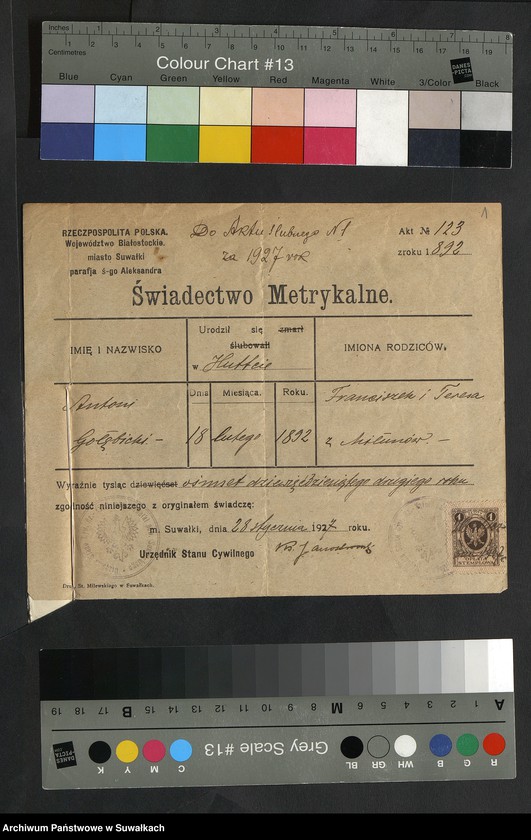 Inches
Centimetres
Colour Chart #13
DANES-PICTA
Blue Cyan Green Yellow Red Magenta White 3/Color Black
1
RZECZPOSPOLITA POLSKA.
Województwo Białostockie.
miasto Suwałki
parafja ś-go Aleksandra
Do Aktu ślubnego N1
za 1927 rok
Akt № 123
z roku 1892
Świadectwo Metrykalne.
IMIĘ I NAZWISKO
Urodził się zmarł
ślubowali
w Huttcie
IMIONA RODZICÓW.
Dnia Miesiąca. Roku.
Antoni
Gołębicki –
18 lutego 1892
Franciszek i Teresa
z
Wyraźnie tysiąc dziewięćset ośmset dziewięćdziesiątego drugiego roku
zgodność niniejszego z oryginałem świadczę:
m. Suwałki, dnia 28 stycznia 1927 roku.
Urzędnik Stanu Cywilnego
Dru. St. Milewskiego w Suwałkach.
Grey Scale #13
A 1 2 3 4 5 6 M 8 9 10 11 12 13 14 15 B 17 18 19
R G B WH GR BL C M Y K
Archiwum Państwowe w Suwałkach